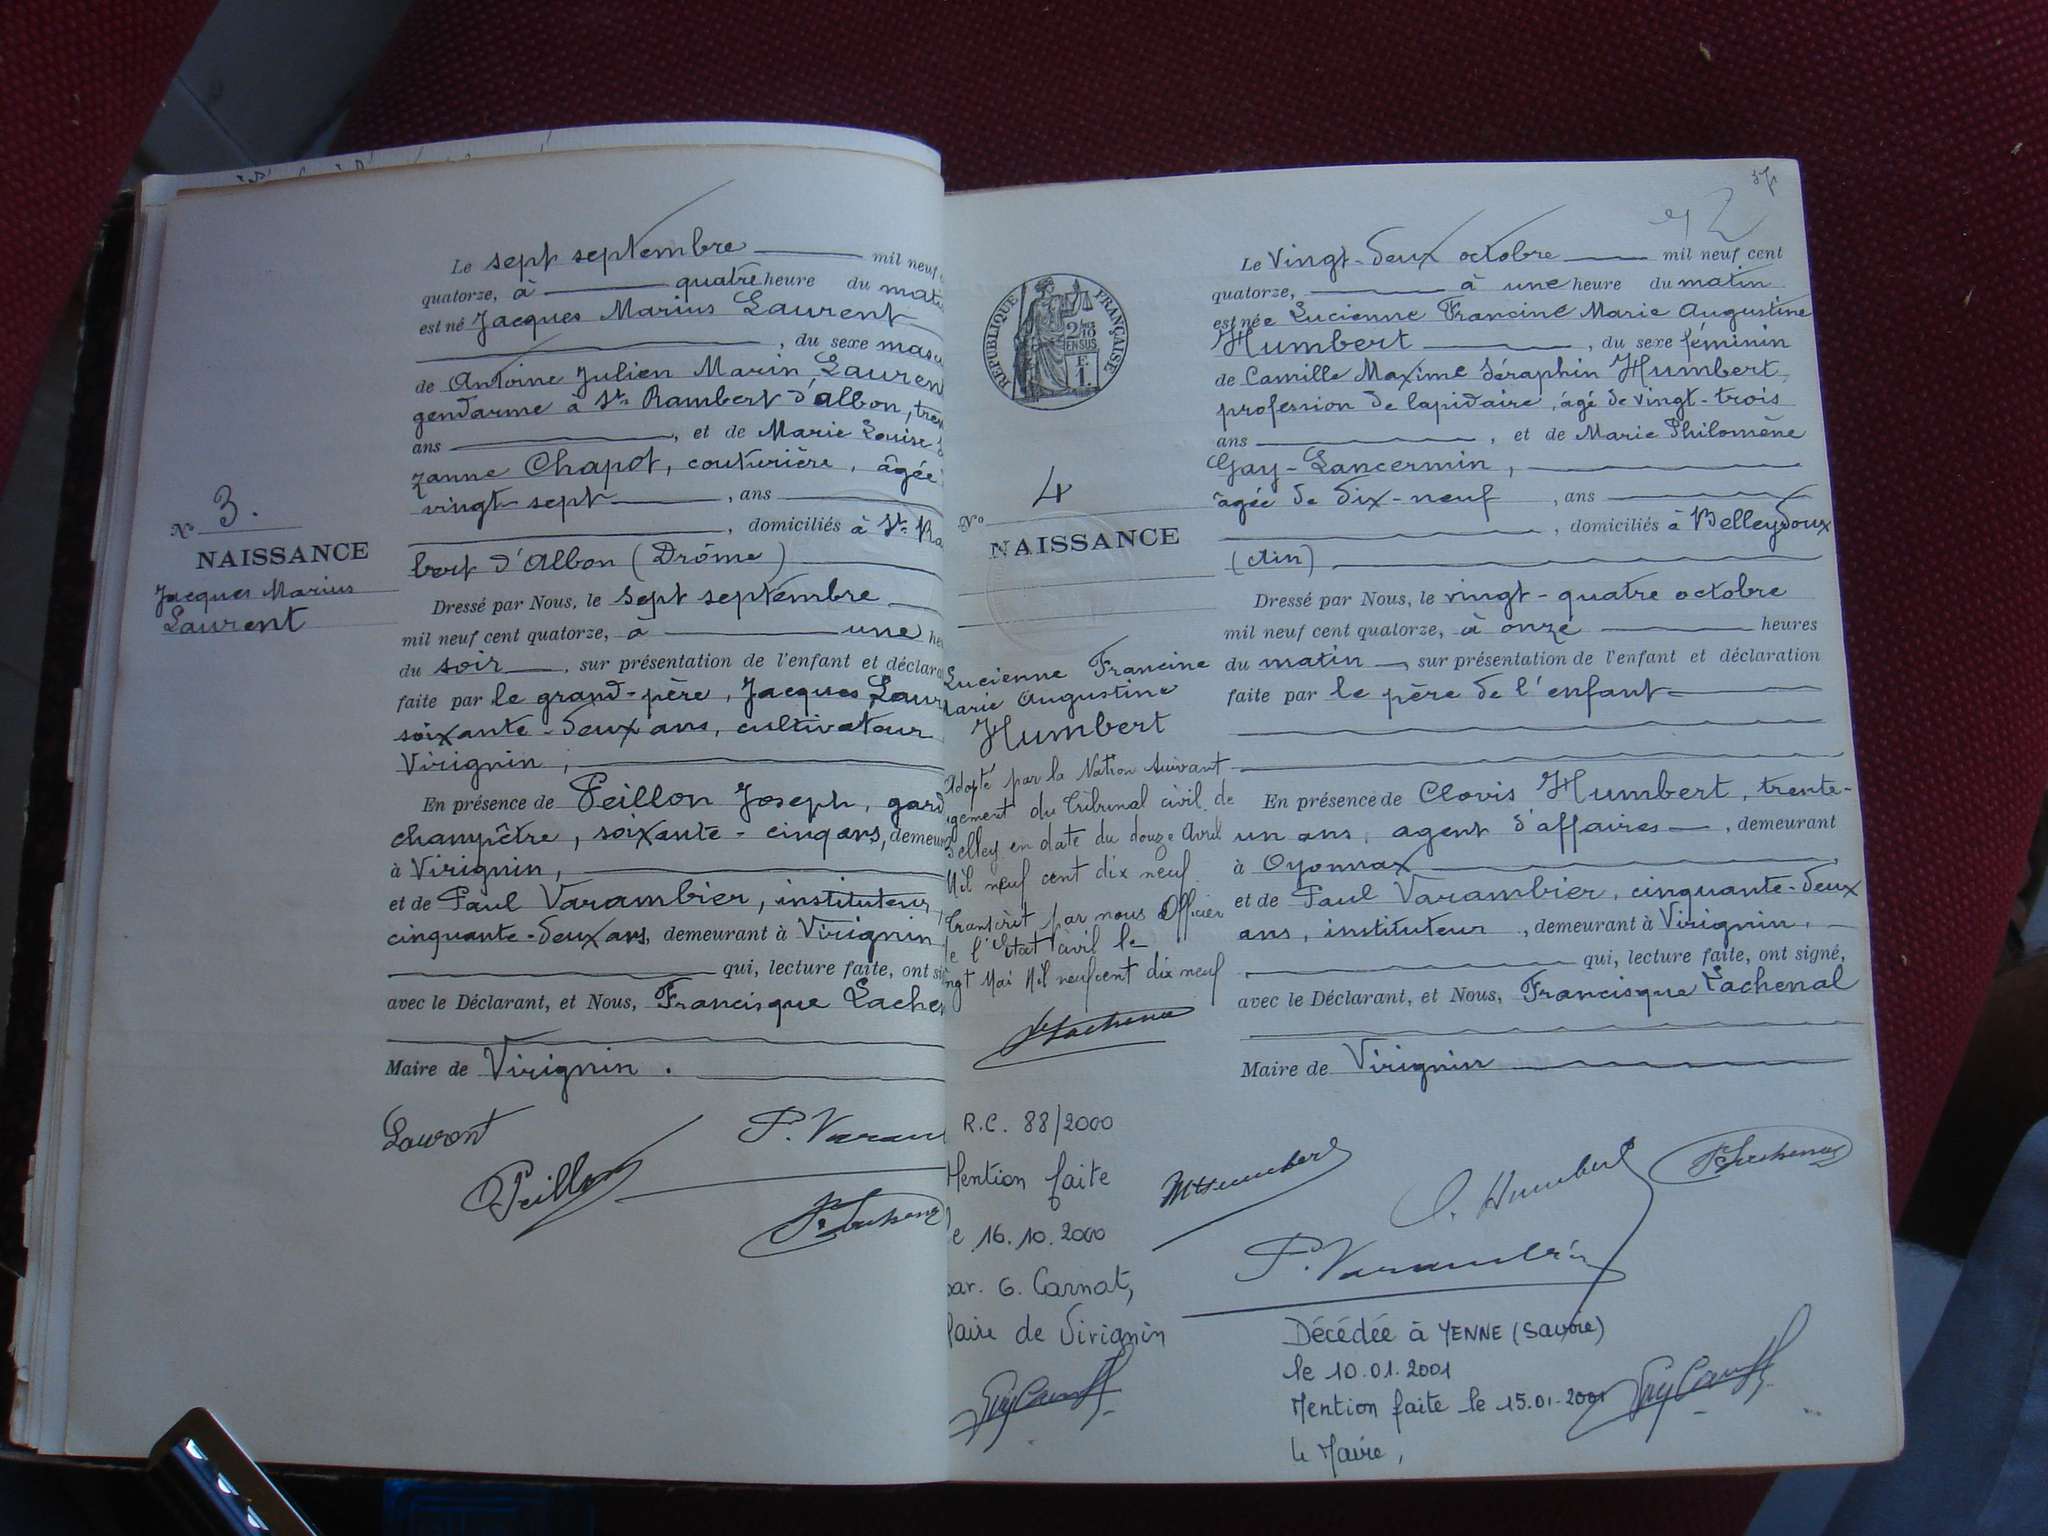 Le sept septembre mil neuf
quatorze, à quatre heure du
est né Jacques Marius Laurent
, du sexe
de Antoine Julien Marin Laurent
gendarme à St. Rambert d'Albon,
ans , et de Marie Louise
zanne Chapot, couturière, âgée
vingt sept , ans
, domiciliés à St.
bert d'Albon (Drôme)
N° 3.
NAISSANCE
Jacques Marius
Laurent
Dressé par Nous, le sept septembre
mil neuf cent quatorze, à une
du soir , sur présentation de l'enfant et
faite par le grand-père, Jacques
soixante-deux ans, cultivateur
Virignin,
En présence de Peillon Joseph,
champêtre, soixante-cinq ans,
à Virignin,
et de Paul Varambier, instituteur,
cinquante-deux ans, demeurant à Virignin
qui, lecture faite, ont
avec le Déclarant, et Nous, Francisque
Maire de Virignin.
Laurent
Peillon
P.
57
42
RÉPUBLIQUE FRANÇAISE
2/10
EN SUS
F
1.
Le vingt-deux octobre mil neuf cent
quatorze, à une heure du matin
est née Lucienne Francine Marie Augustine
Humbert , du sexe féminin
de Camille Maxime Séraphin Humbert,
profession de lapidaire, âgé de vingt-trois
ans , et de Marie Philomène
Gay-Lancermin,
âgée de dix-neuf , ans
, domiciliés à Belleydoux
(Ain)
N° 4
NAISSANCE
Lucienne Francine
Marie Augustine
Humbert
Adopté par la Nation suivant
jugement du Tribunal civil de
Belley en date du douze Avril
Mil neuf cent dix neuf
Transcrit par nous Officier
de l'Etat civil le
Mai Mil neuf cent dix neuf
Dressé par Nous, le vingt-quatre octobre
mil neuf cent quatorze, à onze heures
du matin , sur présentation de l'enfant et déclaration
faite par le père de l'enfant
En présence de Clovis Humbert, trente-
un ans, agent d'affaires , demeurant
à Oyonnax
et de Paul Varambier, cinquante-deux
ans, instituteur , demeurant à Virignin,
qui, lecture faite, ont signé,
avec le Déclarant, et Nous, Francisque Lachenal
Maire de Virignin
R.C. 88/2000
Mention faite
le 16.10.2000
par G. Carnat,
Maire de Virignin
M Humbert
C. Humbert
P. Varambier
Décédée à YENNE (Savoie)
le 10.01.2001
Mention faite le 15.01.2001
Le Maire,